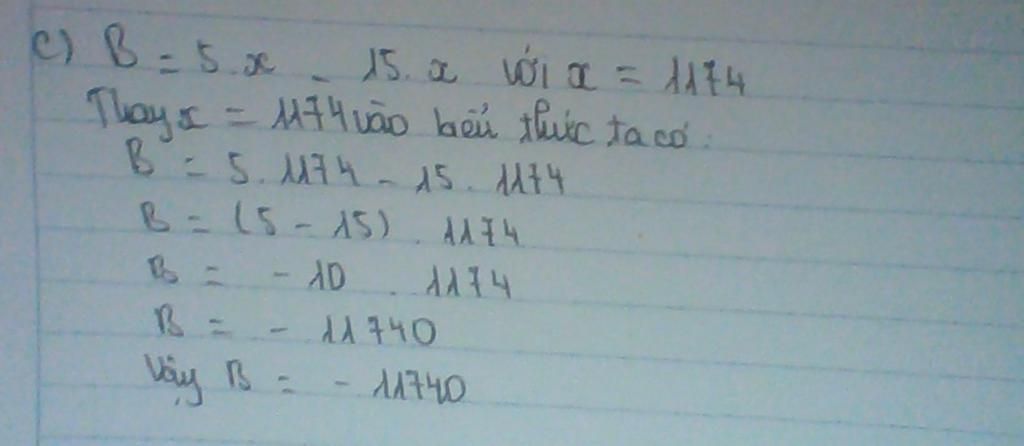 c) B = 5.x - 15.x với x = 1174
Thay x = 1174 vào biểu thức ta có:
B = 5.1174 - 15.1174
B = (5 - 15).1174
B = - 10 . 1174
B = - 11740
Vậy B = - 11740